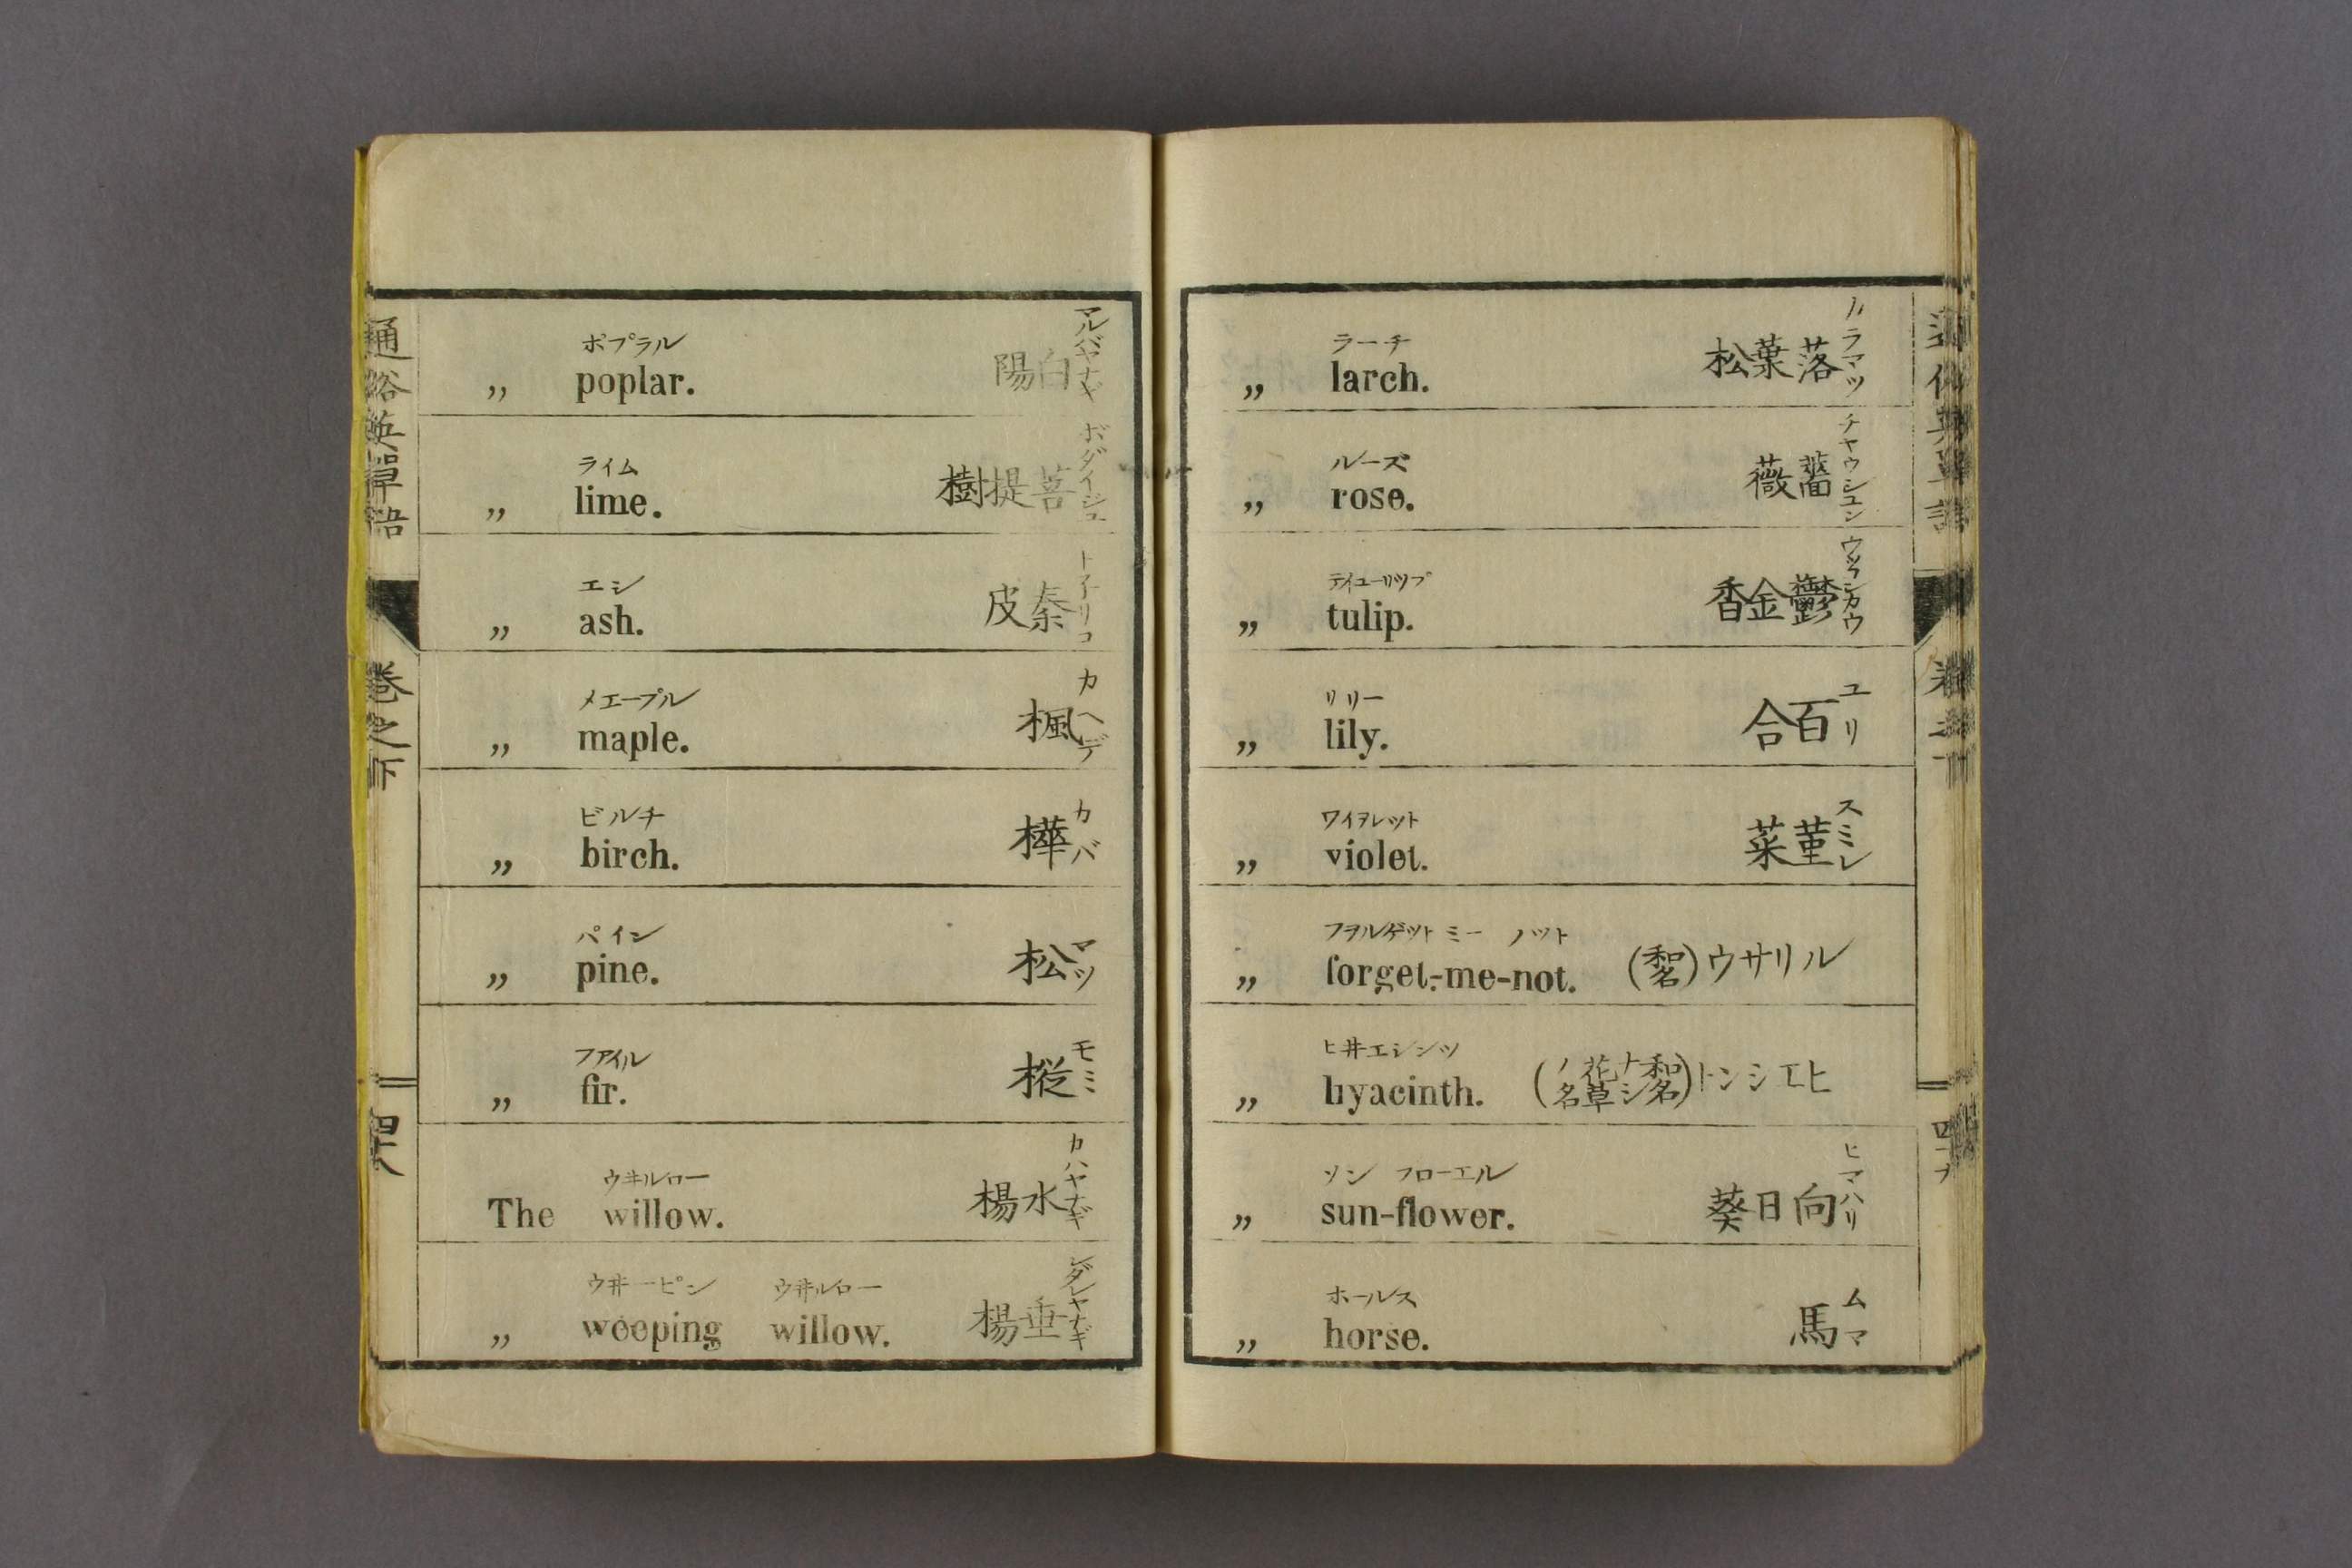 通俗英單語
卷之下
四十八
ポプラル
マルバヤナギ
„ poplar. 白陽
ライム
ボダイジュ
„ lime. 菩提樹
エシ
ト子リコ
„ ash. 秦皮
メエープル
カヘデ
„ maple. 楓
ビルチ
カバ
„ birch. 樺
パイン
マツ
„ pine. 松
ファイル
モミ
„ fir. 樅
ウ井ルロー
カハヤナギ
The willow. 水楊
ウ井ーピン ウ井ルロー
シダレヤナギ
„ weeping willow. 垂楊
ラーチ
カラマツ
„ larch. 落葉松
ルーズ
チヤウシユン
„ rose. 薔薇
テイユーリツプ
ウツコンカウ
„ tulip. 鬱金香
リリー
ユリ
„ lily. 百合
ワイヲレツト
スミレ
„ violet. 菫菜
フヲルゲツト ミー ノツト
„ forget-me-not. ルリサウ(和名)
ヒ井エシンツ
„ hyacinth. ヒエシント(和名ナシ花草ノ名)
ソン フローエル
ヒマハリ
„ sun-flower. 向日葵
ホールス
ムマ
„ horse. 馬